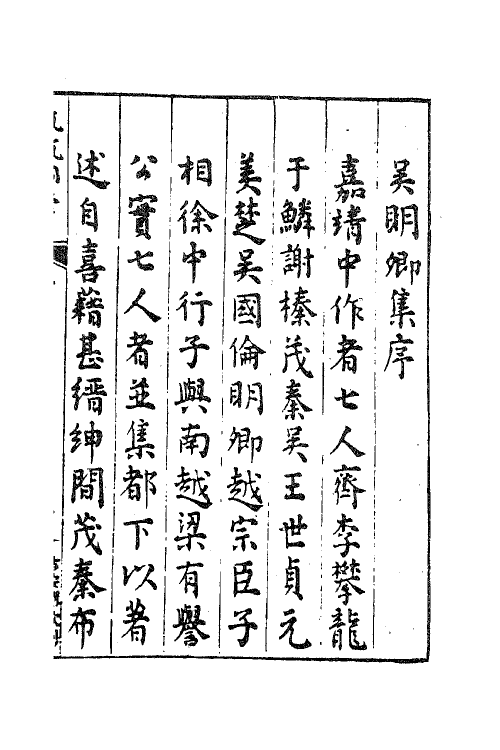 吴明卿集序
嘉靖中作者七人齊李攀龍
于鱗謝榛茂秦吴王世貞元
美楚吴國倫明卿越宗臣子
相徐中行子與南越梁有譽
公實七人者並集都下以著
述自喜藉甚縉紳間茂秦布